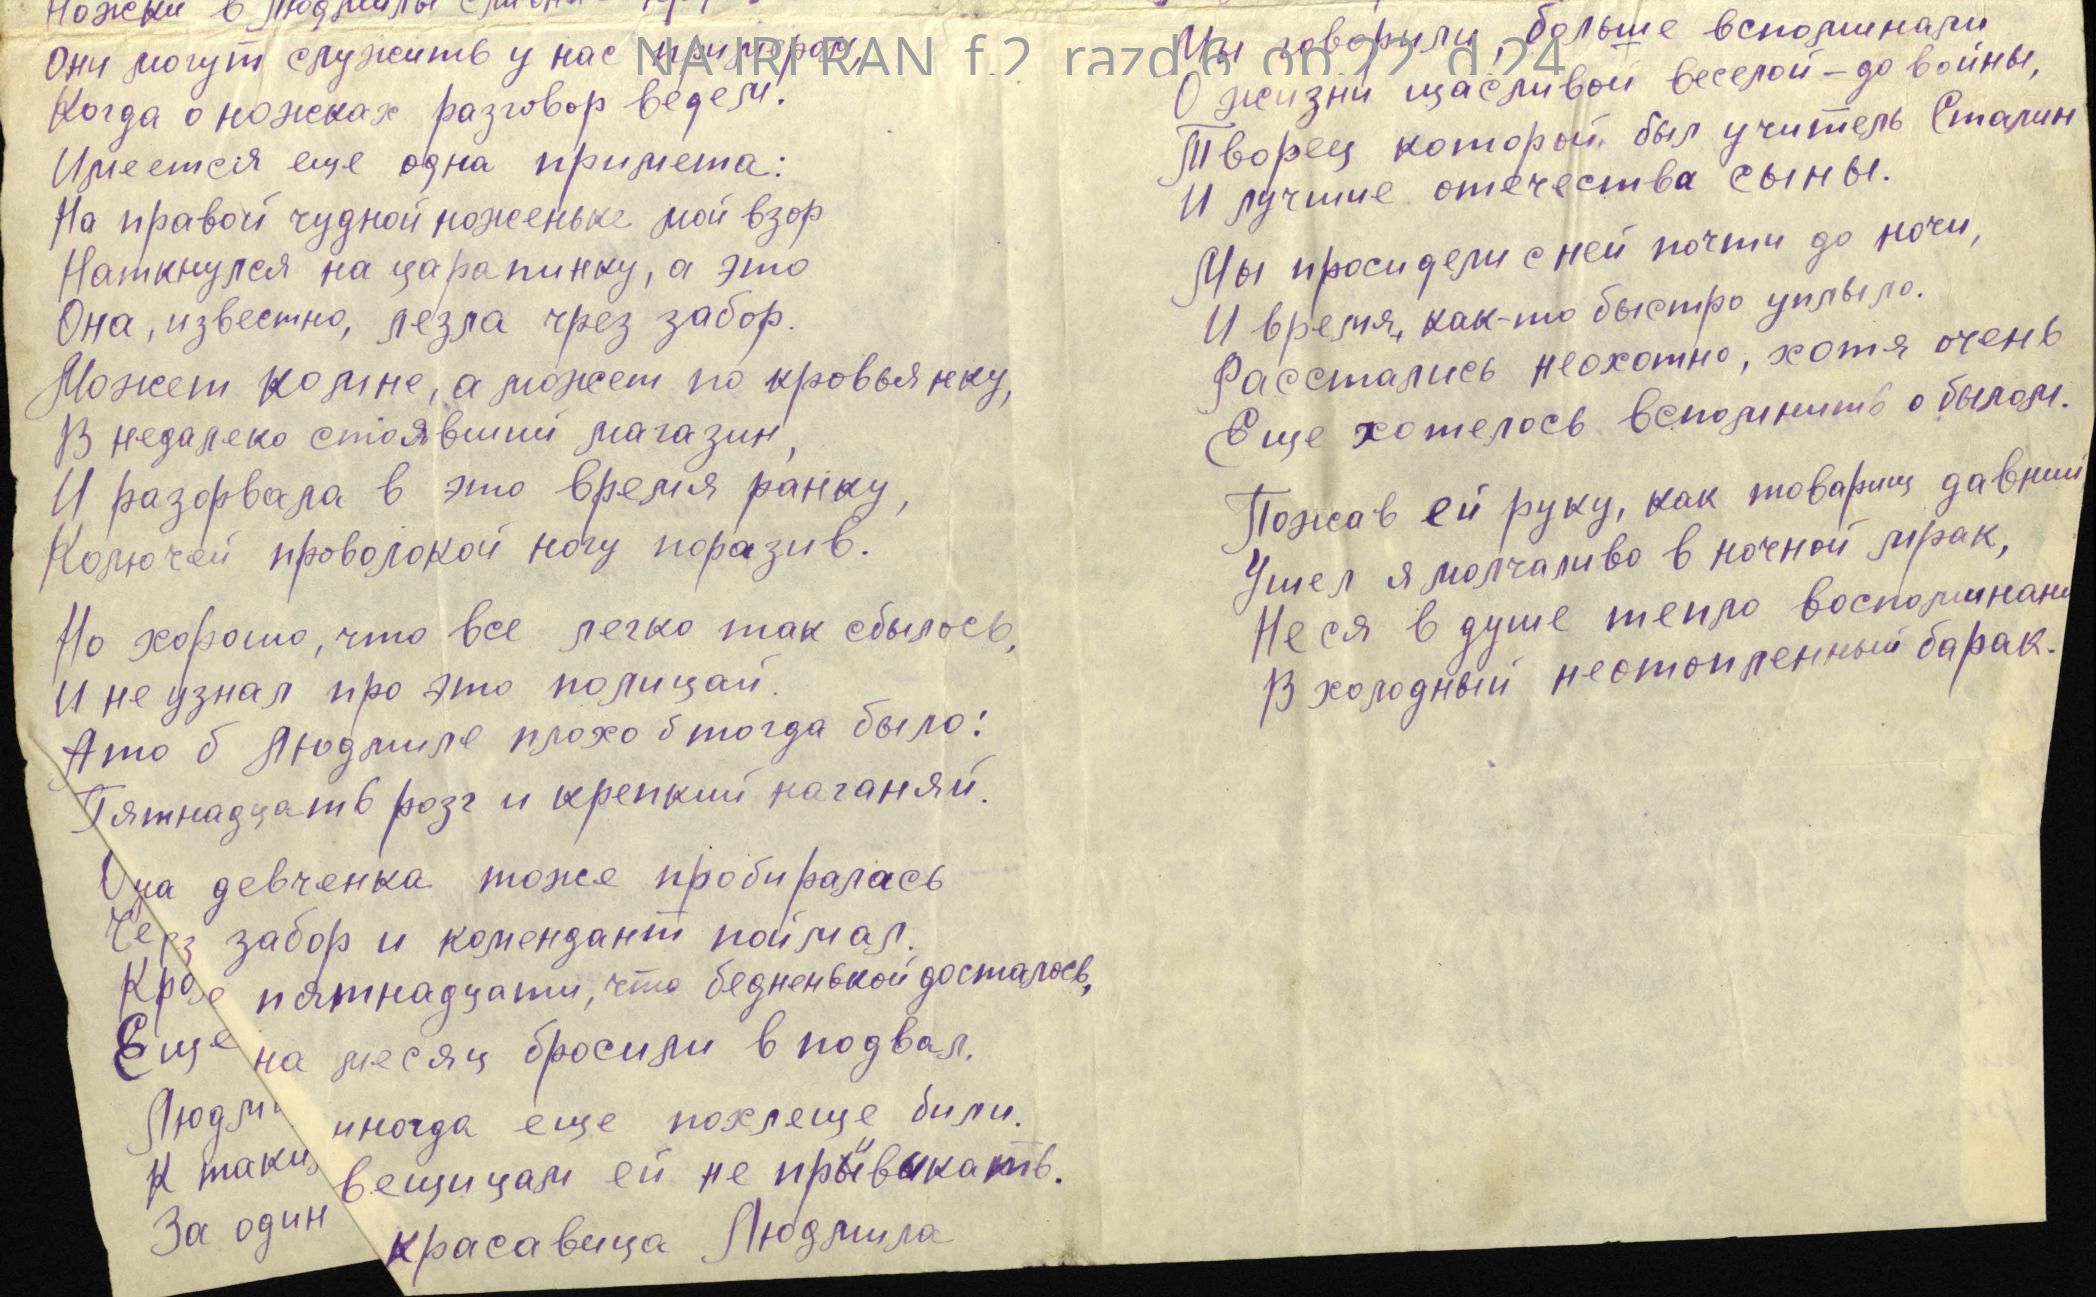 Ножки в Людмилы
Они могут служить у нас примером,
Когда о ножках разговор ведем.
Имеется еще одна примета:
На правой чудной ноженьке мой взор
Наткнулся на царапинку, а это
Она, известно, лезла чрез забор.
Может ко мне, а может по кровьянку,
В недалеко стоявший магазин,
И разорвала в это время ранку,
Колючей проволокой ногу поразив.
Но хорошо, что все легко так сбылось,
И не узнал про это полицай.
А то б Людмиле плохо б тогда было:
Пятнадцать розг и крепкий наганяй.
Одна девченка тоже пробиралась
Через забор и комендант поймал.
Кроме пятнадцати, что бедненькой досталось,
Еще на месяц бросили в подвал.
Людми иногда еще похлеще били.
К таким вещицам ей не привыкать.
За один красавица Людмила
NA IRI RAN f.2 razd.6 op.22 d.24
Мы говорили, больше вспоминали
О жизни щасливой веселой – до войны,
Творец которой был учитель Сталин
И лучшие отечества сыны.
Мы просидели с ней почти до ночи,
И время, как-то быстро уплыло.
Расстались неохотно, хотя очень
Еще хотелось вспомнить о былом.
Пожав ей руку, как товарищ давний
Ушел я молчаливо в ночной мрак,
Неся в душе тепло воспоминани
В холодный неотопленный барак.